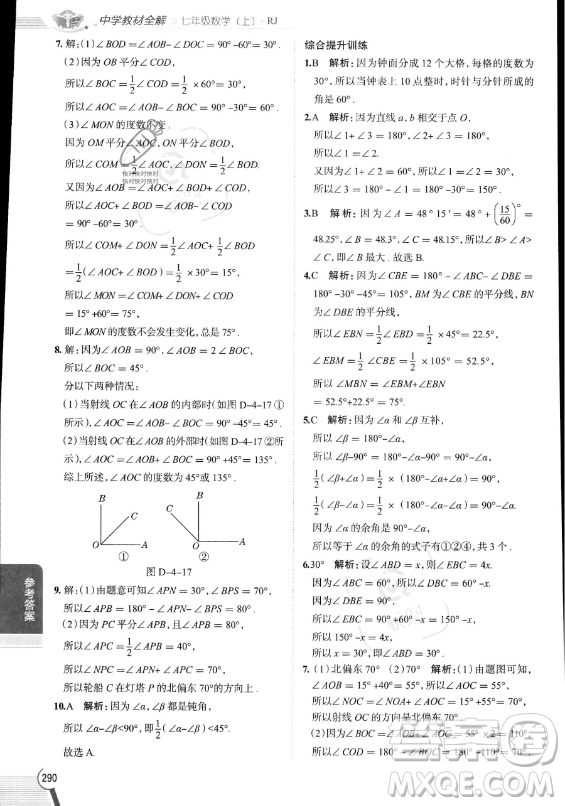 中学教材全解 七年级数学（上）· RJ
7. 解：(1)∠BOD =∠AOD -∠AOB = 90°-60°=30°.
(2)因为OB平分∠COD，
所以∠BOC =1/2∠COD =1/2×60°=30°，
所以∠AOC =∠AOB-∠BOC = 90°-30°=60°.
(3)∠MON的度数不变.
因为OM平分∠COD，ON平分∠AOB，
所以∠COM=1/2∠COD，∠DON=1/2∠AOB.
快对快对快对
快对快对快对
又因为∠AOC+∠BOD =∠AOB -∠COD
= 90°-60°=30°，
所以∠COM+∠DON =1/2∠AOC+1/2∠BOD
=1/2(∠AOC+∠BOD)=1/2×30°=15°，
所以∠MON =∠COM+∠DON+∠COD
= 15°+60°=75°，
即∠MON的度数不会发生变化，总是75°.
8. 解：因为∠AOB = 90°，∠AOB = 2∠BOC，
所以∠BOC = 45°.
分以下两种情况：
(1)当射线OC在∠AOB的内部时(如图D-4-17①
所示)，∠AOC =∠AOB-∠BOC = 90°-45°= 45°.
(2)当射线OC在∠AOB的外部时(如图D-4-17②所
示)，∠AOC =∠AOB+∠BOC = 90°+45°=135°.
综上所述，∠AOC的度数为45°或135°.
B C O A ①
C B O A ②
图D-4-17
9. 解：(1)由题意可知∠APN = 40°，∠BPS = 70°，
所以∠APB = 180°-∠APN -∠BPS = 70°.
(2)因为PC平分∠APB，∠APB = 70°，
所以∠APC =1/2∠APB = 35°，
所以∠NPC =∠APN+∠APC = 75°，
所以轮船C在灯塔P的北偏东75°的方向上.
10.A 解析：因为∠α是钝角，∠β都是锐角，
所以∠α-∠β<90°，即1/2(∠α-∠β)<45°.
故选A.
参考答案
290
综合提升训练
1.B 解析：因为钟面分成12个大格，每格的度数为
30°，所以当钟表上10点整时，时针与分针所成的
角为60°.
2.A 解析：因为直线a，b相交于点O，
所以∠1+∠3 = 180°，∠2+∠3 = 180°，
所以∠1 =∠2.
又因为∠1+∠2 = 60°，所以∠1 =∠2 = 30°，
所以∠3 = 180°-∠1 = 180°-30°= 150°.
3.B 解析：因为∠A = 48°15′= 48°+(15/60)°=
48.25°，∠B = 48.3°，∠C = 48.15°，所以∠B>∠A>
∠C，即∠B最大. 故选B.
4.C 解析：因为∠CBE = 180°-∠ABC-∠DBE =
180°-30°-45°=105°，BM为∠CBE的平分线，BN
为∠DBE的平分线，
所以∠EBN=1/2∠EBD =1/2×45°=22.5°，
∠EBM =1/2∠CBE =1/2×105°= 52.5°，
所以∠MBN =∠EBM+∠EBN
= 52.5°+22.5°= 75°.
5.C 解析：因为∠α与∠β互补，
所以∠β = 180°-∠α，
所以∠β-90°= 180°-∠α-90°= 90°-∠α，
1/2(∠β+∠α)=1/2×(180°-∠α+∠α)= 90°，
1/2(∠β-∠α)=1/2×(180°-∠α-∠α)= 90°-∠α.
因为∠α的余角是90°-∠α，
所以等于∠α的余角的式子有①②④，共3个.
6.30° 解析：设∠ABD = x，则∠EBC = 4x.
因为∠DBC = 60°，所以∠ABC = 60°-x.
因为∠ABE = 90°，所以∠EBC = 90°+60°-x，
所以150°-x = 4x，解得x = 30°，
所以∠ABD = 30°.
7.(1)北偏东70° (2)70° 解析：(1)由题图可知
∠AOB = 15°+40°=55°，因为∠AOC=∠AOB=55°，
所以∠NOC =∠NOA+∠AOC = 15°+55°=70°，
所以射线OC的方向是北偏东70°.
(2)因为∠BOC =∠AOB+∠AOC = 55°×2=110°，
所以∠COD = 180°-∠BOC = 180°-110°=70°.
作业精灵
MXQE.COM